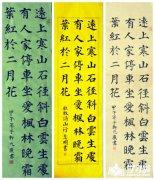 遠上寒山石徑斜白雲生處
有人家停車坐愛楓林晚霜
葉紅於二月花
遠上寒山石徑斜白雲生處
有人家停車坐愛楓林晚霜
葉紅於二月花
杜牧詩山行
遠上寒山石徑斜白雲生處
有人家停車坐愛楓林晚霜
葉紅於二月花